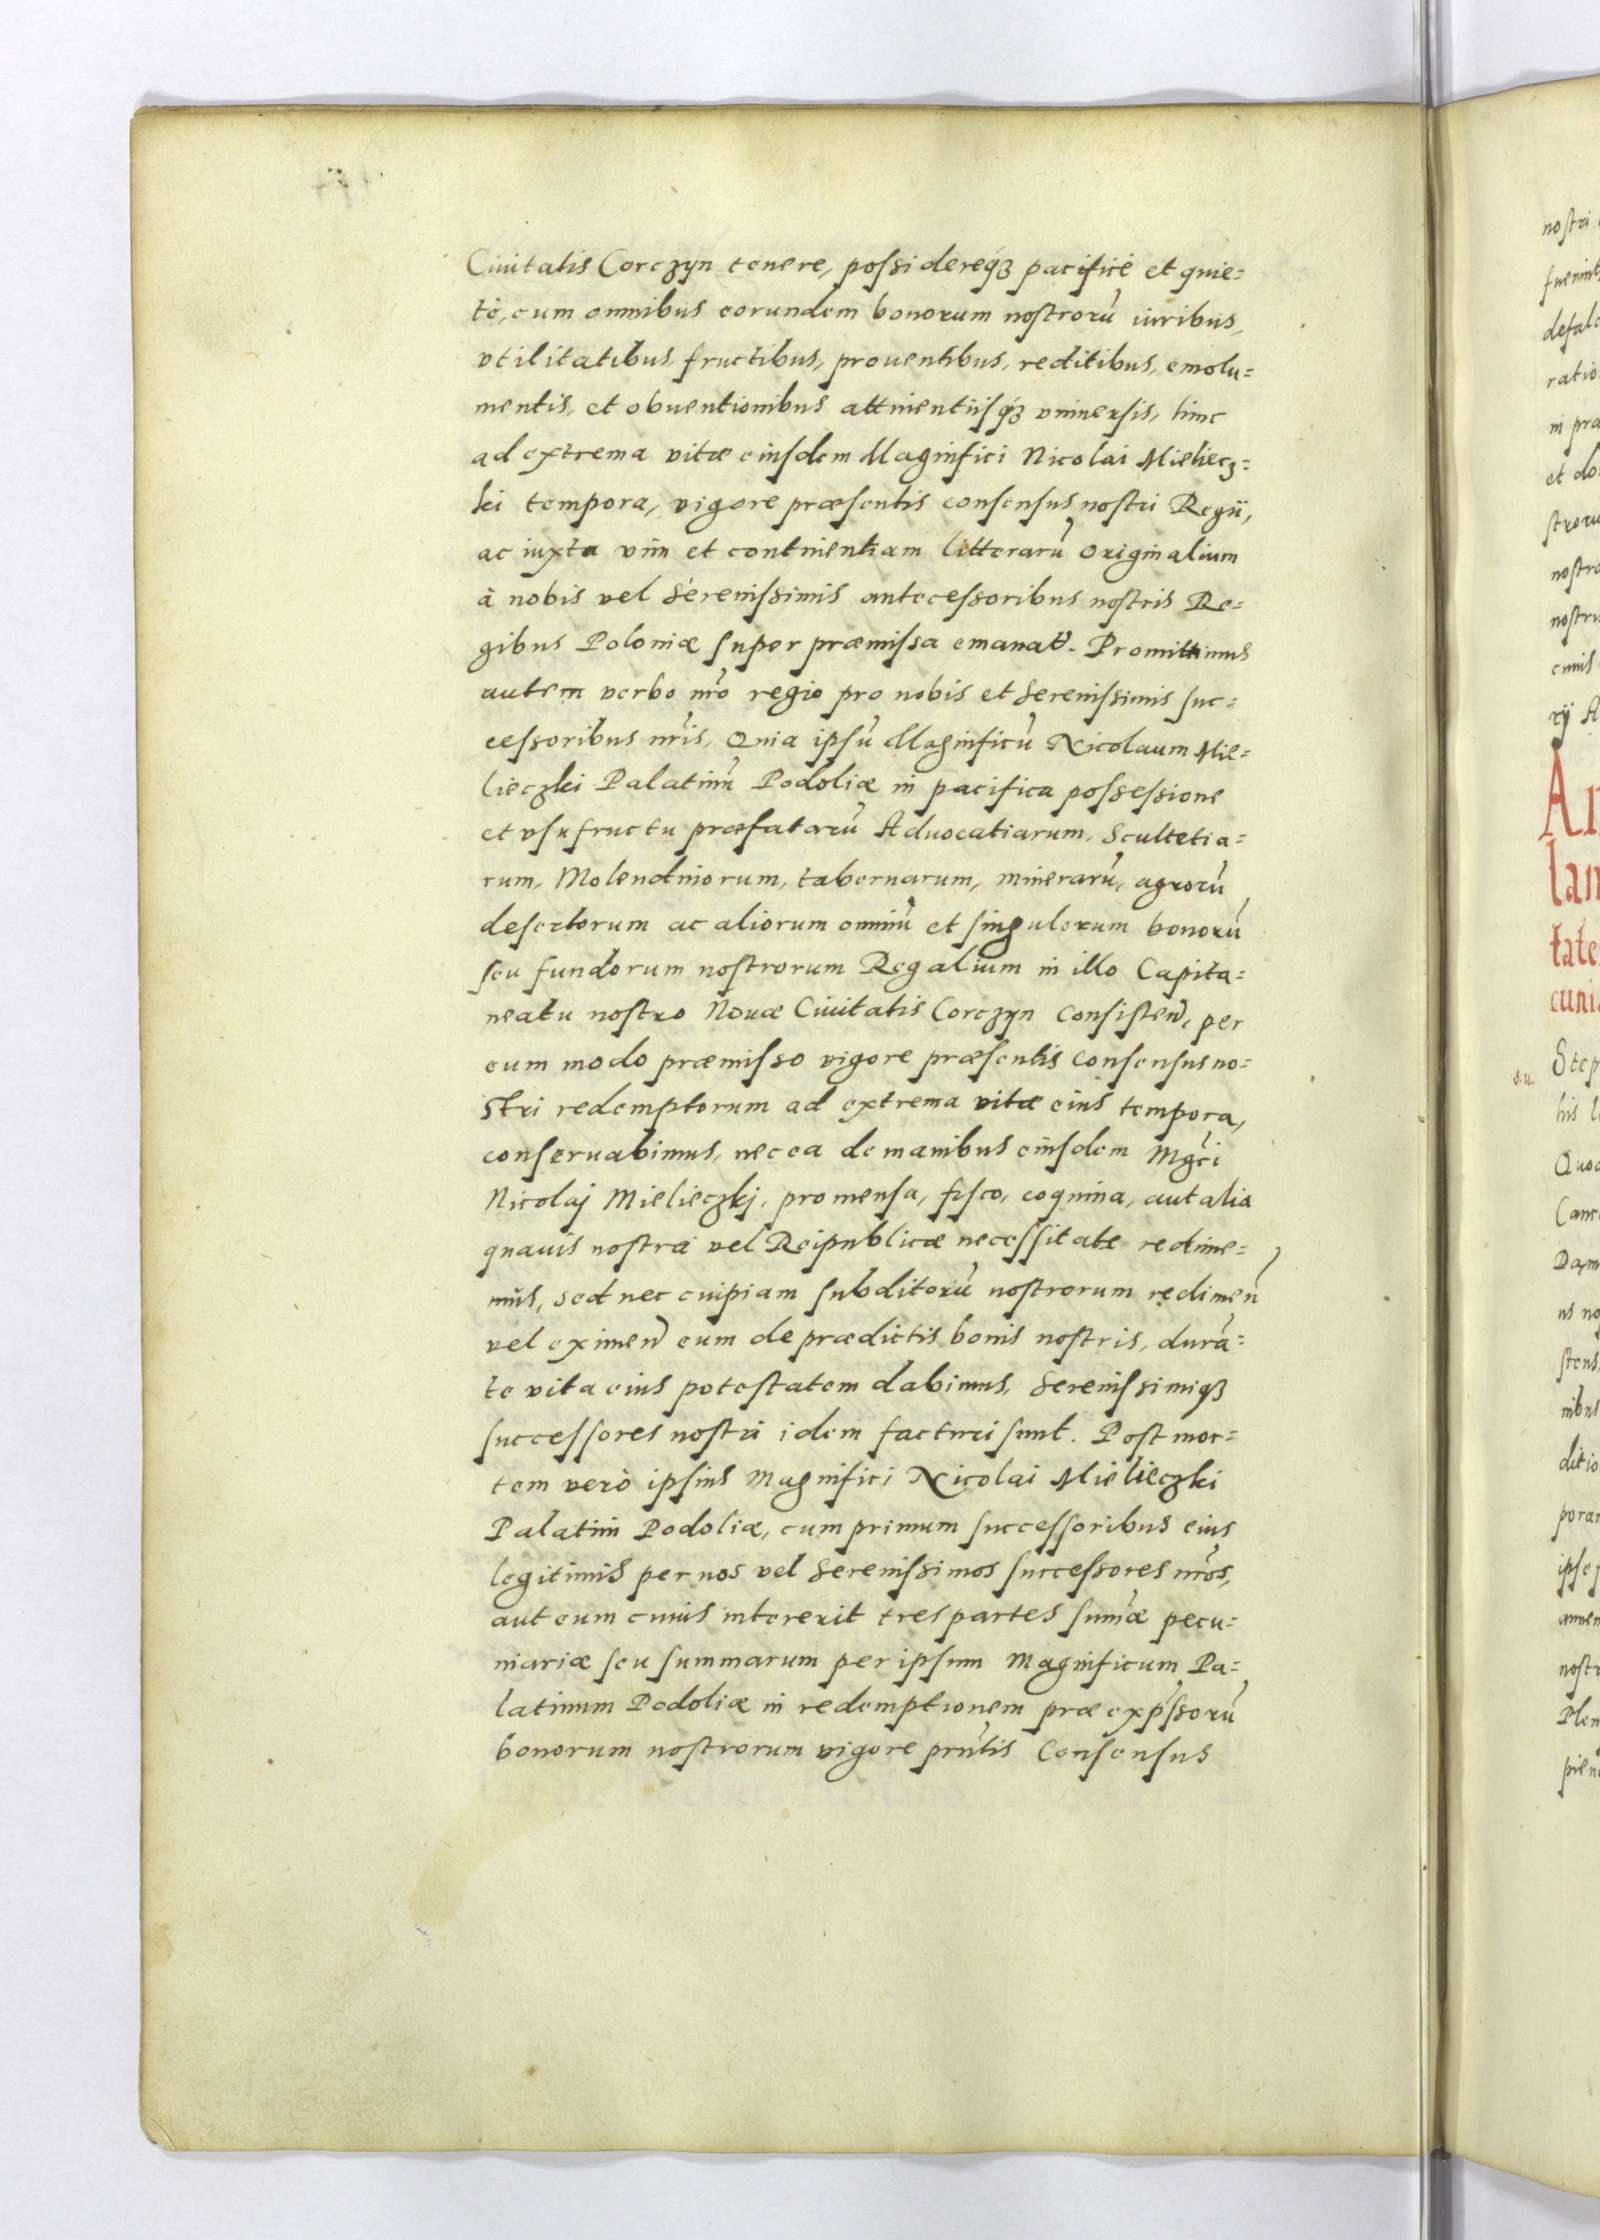 Ciuitatis Corczyn tenere, possidereq́ꝫ pacificè et quie=
tè, cum omnibus eorundem bonorum nostrorū iuribus,
vtilitatibus, fructibus, prouentibus, reditibus, emolu=
mentis, et obuentionibus attinentiisq́ꝫ vniuersis, hinc
ad extrema vitæ eiusdem Magnifici Nicolai Mieliecz=
ki tempora, vigore præsentis consensus nostri Regii,
ac iuxta vim et continentiam litterarū originalium
à nobis vel Serenissimis antecessoribus nostris Re=
gibus Poloniæ super præmissa emanat̃. Promittimus
autem verbo nr̃o regio pro nobis et Serenissimis suc=
cessoribus nr̃is, Quia ipsū Magnificū Nicolaum Mie=
lieczki Palatinū Podoliæ in pacifica possessione
et vsufructu præfatarū Aduocatiarum, Scultetia=
rum, Molendinorum, tabernarum, minerarū, agrorū
desertorum ac aliorum omniū et singulorum bonorū
seu fundorum nostrorum Regalium in illo Capita=
neatu nostro Nouæ Ciuitatis Corczyn consisteñ, per
eum modo præmisso vigore præsentis consensus no=
stri redemptorum ad extrema vitæ eius tempora,
conseruabimus, nec ea de manibus eiusdem Mgc̃i
Nicolaj Mielieczkj, pro mensa, fisco, coquina, aut alia
quauis nostra vel Reipublicæ necessitate redime=
mus, sed nec cuipiam subditorū nostrorum redimeñ
vel eximeñ eum de prædictis bonis nostris, durā=
te vita eius potestatem dabimus, Serenissimiqꝫ
successores nostri idem facturi sunt. Post mor=
tem verò ipsius Magnifici Nicolai Mielieczki
Palatini Podoliæ, cum primum successoribus eius
legitimis per nos vel Serenissimos successores nr̃os,
aut eum cuius intererit tres partes sum̃æ pecu=
niariæ seu summarum per ipsum Magnificum Pa=
latinum Podoliæ in redemptionem præexp̃ssorū
bonorum nostrorum vigore prñtis Consensus
nostri
fuerint
defalc
ratio
in præ
et do
stroru
nostro
nostri
cuius
rÿ A
An
lan
tate
cuni
s.u.
Step
his l
Quod
Canc
nibus
ditio
porar
ipse
nostr
Plen